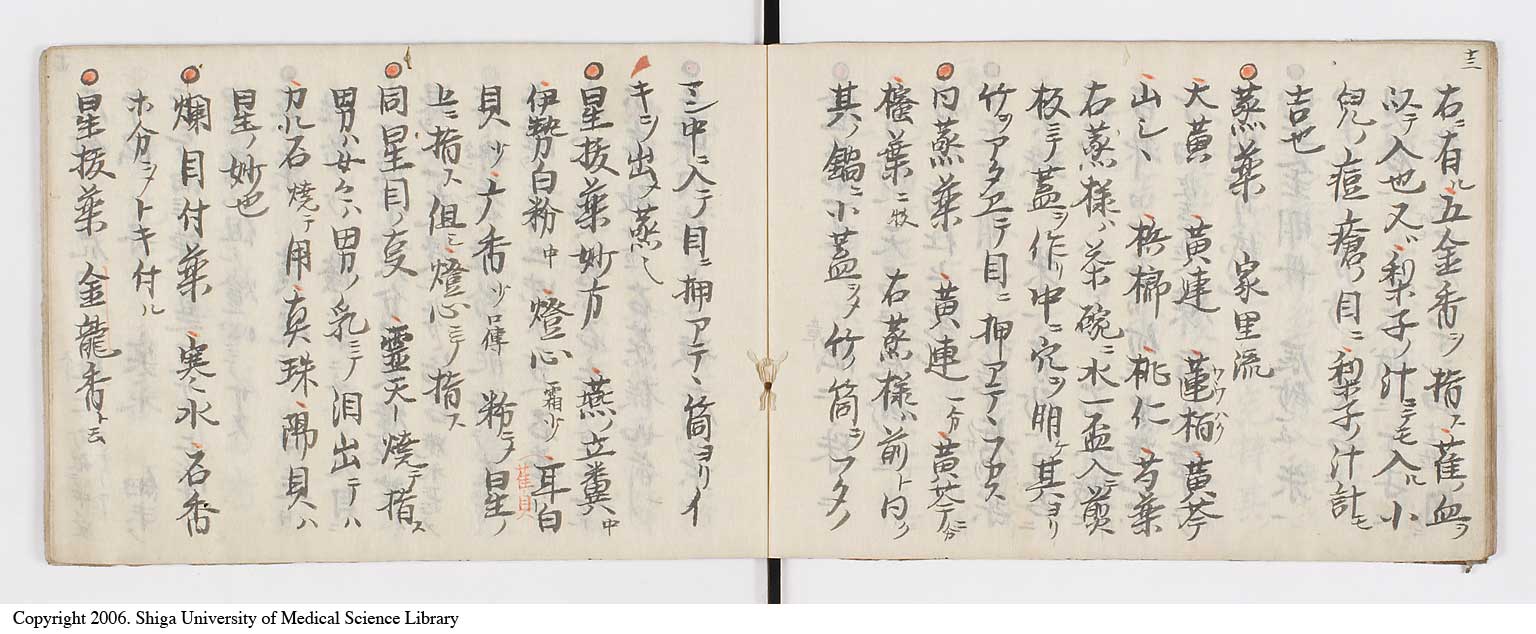 十三
右ニ有ル五金香ヲ指ス萑ノ血ヲ
以テ入也又ハ梨子ノ汁ニテモ入ル小
兒ノ痘瘡ノ目ニ梨子ノ汁計モ
吉也
蒸藥 家里流
大黄 黄連 黄栢 黄芩
ワウハク
山シヽ 梹榔 桃仁 芍藥
右蒸様ハ茶碗ニ水一盃入テ煎
板ニテ蓋ヲ作リ中ニ穴ヲ明ケ其ヨリ
竹ツアタエテ目ニ押アテヽフカス
同蒸藥 黄連一分 黄芩二分
右蒸様ハ前ト同シ
其ノ鍋ニ小蓋ヲシタ竹ノ筒ヲフタノ
マン中ニ入テ目ニ押アテヽ筒ヨリイ
キヲ出タ蒸シ
星抜藥妙方 燕ノ立糞中
伊勢白粉中 燈心霜少 耳白
貝少 丁香少口傳 粉ニシテ星ノ
萑貝
上ニ指ス但シ燈心ニテ指ス
同星目ノ支 霊天一燒テ指ス
男ハ女女ハ男ノ乳ニテ泪出テハ
カル石燒テ用真珠陽貝ハ
星ノ妙也
爛目付藥 寒水石香
ホ分ニメトキ付ル
星抜藥 金龍香ト云
Copyright 2006. Shiga University of Medical Science Library